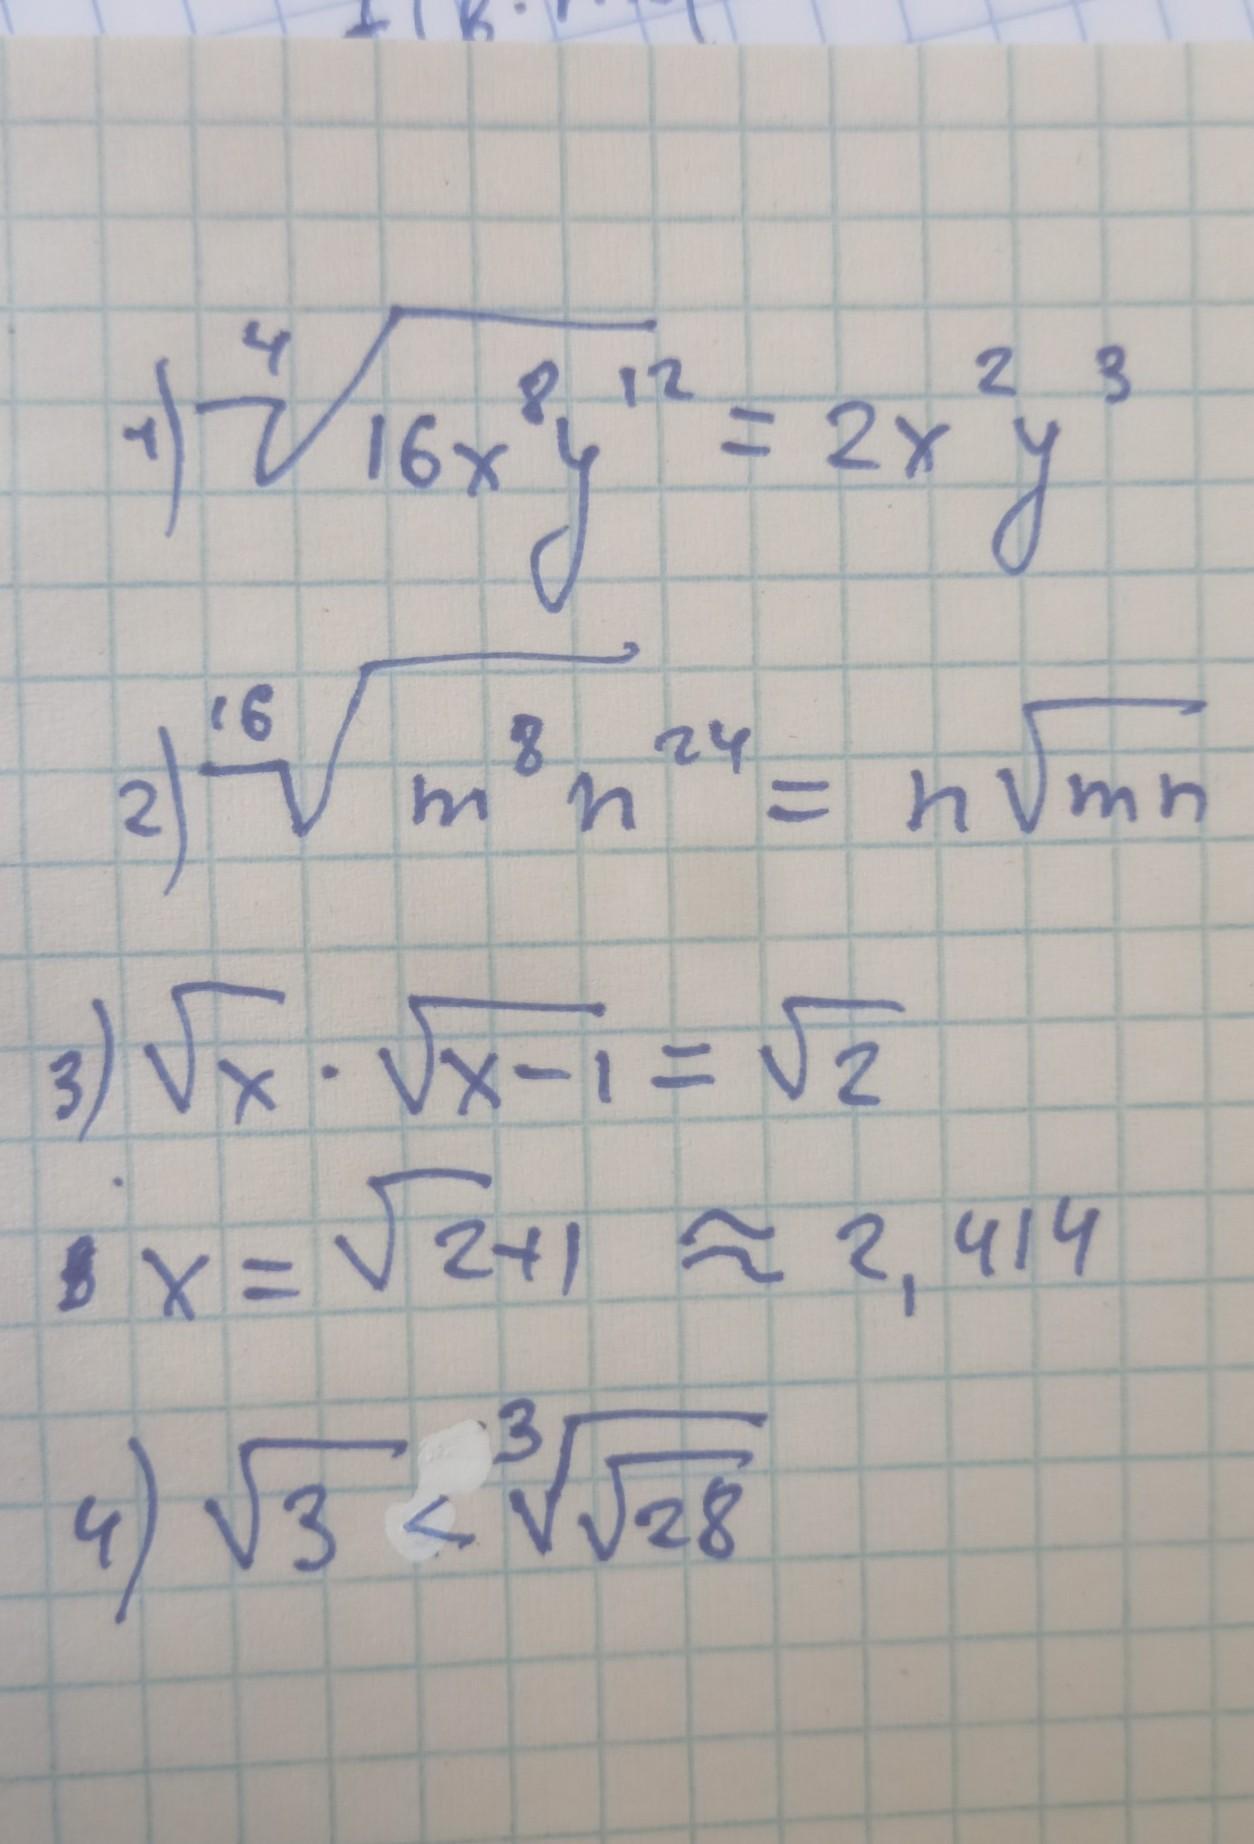 1) ⁴√16x⁸y¹² = 2x²y³
2) ¹⁶√m⁸n²⁴ = n√mn
3) √x · √x-1 = √2
x = √2+1 ≈ 2,414
4) √3 < ³√√28